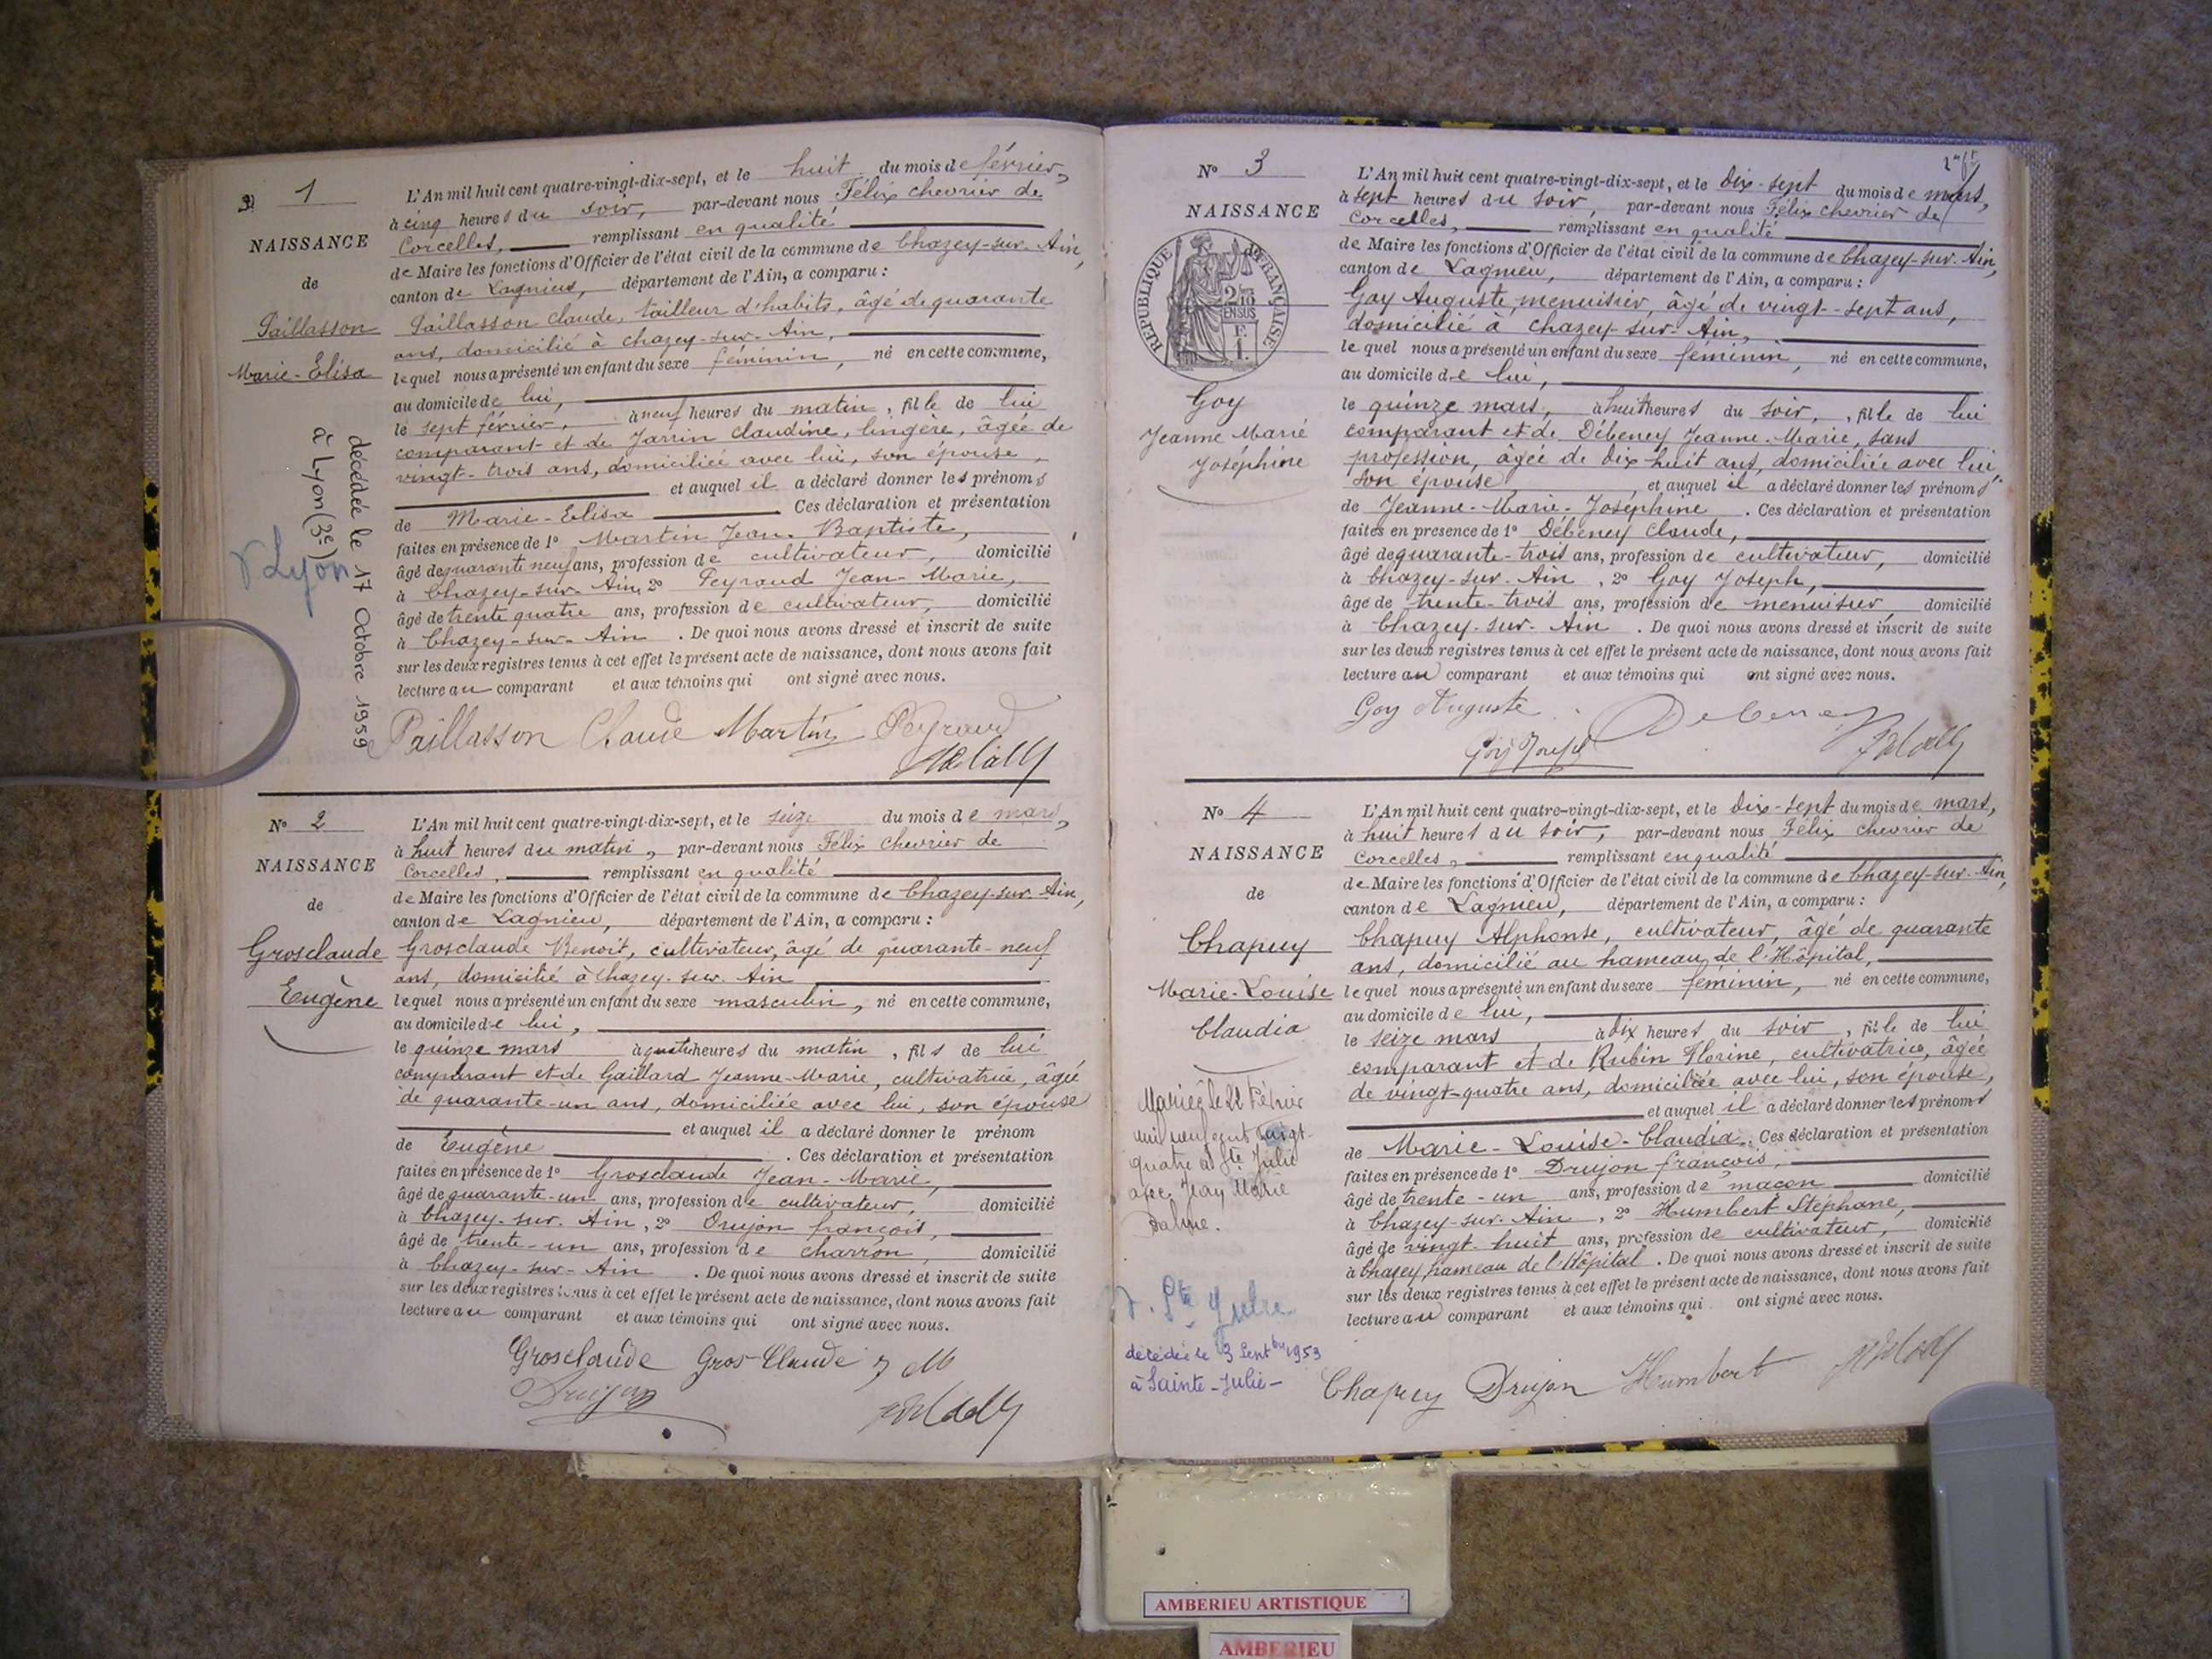 N° 1
NAISSANCE
de
Paillasson
Marie-Elisa
décédée le 17 Octobre 1959
à Lyon (3e)
Lyon
L'An mil huit cent quatre-vingt-dix-sept, et le huit du mois de février,
à cinq heures du soir, par-devant nous Félix chevrier de
Corcelles, remplissant en qualité
de Maire les fonctions d'Officier de l'état civil de la commune de Chazey-sur-Ain,
canton de Lagnieu, département de l'Ain, a comparu :
Paillasson Claude, tailleur d'habits, âgé de quarante
ans, domicilié à chazey-sur-Ain,
lequel nous a présenté un enfant du sexe féminin, né en cette commune,
au domicile de lui,
le sept février, à neuf heures du matin, fille de lui
comparant et de Jarrin Claudine, lingère, âgée de
vingt-trois ans, domiciliée avec lui, son épouse,
et auquel il a déclaré donner les prénoms
de Marie-Elisa Ces déclaration et présentation
faites en présence de 1° Martin Jean-Baptiste,
âgé de quarante neuf ans, profession de cultivateur, domicilié
à Chazey-sur-Ain, 2° Peyraud Jean-Marie,
âgé de trente quatre ans, profession de cultivateur, domicilié
à Chazey-sur-Ain . De quoi nous avons dressé et inscrit de suite
sur les deux registres tenus à cet effet le présent acte de naissance, dont nous avons fait
lecture au comparant et aux témoins qui ont signé avec nous.
Paillasson Claude Martin Peyraud
N° 2
NAISSANCE
de
Grosclaude
Eugène
L'An mil huit cent quatre-vingt-dix-sept, et le seize du mois de mars,
à huit heures du matin, par-devant nous Félix Chevrier de
Corcelles, remplissant en qualité
de Maire les fonctions d'Officier de l'état civil de la commune de Chazey-sur-Ain,
canton de Lagnieu, département de l'Ain, a comparu :
Grosclaude Benoit, cultivateur, âgé de quarante-neuf
ans, domicilié à Chazey-sur-Ain
lequel nous a présenté un enfant du sexe masculin, né en cette commune,
au domicile de lui,
le quinze mars à quatre heures du matin, fils de lui
comparant et de Gaillard Jeanne-Marie, cultivatrice, âgée
de quarante-un ans, domiciliée avec lui, son épouse
et auquel il a déclaré donner le prénom
de Eugène . Ces déclaration et présentation
faites en présence de 1° Grosclaude Jean-Marie,
âgé de quarante-un ans, profession de cultivateur, domicilié
à Chazey-sur-Ain, 2° Drujon françois,
âgé de trente-un ans, profession de charron, domicilié
à Chazey-sur-Ain . De quoi nous avons dressé et inscrit de suite
sur les deux registres tenus à cet effet le présent acte de naissance, dont nous avons fait
lecture au comparant et aux témoins qui ont signé avec nous.
Grosclaude Gros-Claude J M
Drujon
N° 3
NAISSANCE
RÉPUBLIQUE FRANÇAISE
Goy
Jeanne Marie
Joséphine
L'An mil huit cent quatre-vingt-dix-sept, et le dix-sept du mois de mars,
à sept heures du soir, par-devant nous Félix chevrier de
Corcelles, remplissant en qualité
de Maire les fonctions d'Officier de l'état civil de la commune de Chazey-sur-Ain,
canton de Lagnieu, département de l'Ain, a comparu :
Goy Auguste, menuisier, âgé de vingt-sept ans,
domicilié à Chazey-sur-Ain,
lequel nous a présenté un enfant du sexe féminin, né en cette commune,
au domicile de lui,
le quinze mars, à huit heures du soir, fille de lui
comparant et de Débeney Jeanne-Marie, sans
profession, âgée de dix huit ans, domiciliée avec lui,
son épouse et auquel il a déclaré donner les prénoms
de Jeanne-Marie-Joséphine . Ces déclaration et présentation
faites en presence de 1° Débeney Claude,
âgé de quarante-trois ans, profession de cultivateur, domicilié
à Chazey-sur-Ain, 2° Goy Joseph,
âgé de trente-trois ans, profession de menuisier, domicilié
à Chazey-sur-Ain . De quoi nous avons dressé et inscrit de suite
sur les deux registres tenus à cet effet le présent acte de naissance, dont nous avons fait
lecture au comparant et aux témoins qui ont signé avec nous.
Goy Auguste Debeney
Goy Joseph
N° 4
NAISSANCE
de
Chapuy
Marie-Louise
Claudia
Mariée le 22 Février
mil neuf cent vingt
quatre à Ste Julie
avec Jean Marie
Ste Julie
décédée le 3 Septbre 1953
à Sainte-Julie-
L'An mil huit cent quatre-vingt-dix-sept, et le dix-sept du mois de mars,
à huit heures du soir, par-devant nous Félix chevrier de
Corcelles, remplissant en qualité
de Maire les fonctions d'Officier de l'état civil de la commune de Chazey-sur-Ain,
canton de Lagnieu, département de l'Ain, a comparu :
Chapuy Alphonse, cultivateur, âgé de quarante
ans, domicilié au hameau de l'Hôpital,
lequel nous a présenté un enfant du sexe féminin, né en cette commune,
au domicile de lui,
le seize mars à dix heures du soir, fille de lui
comparant et de Rubin Florine, cultivatrice, âgée
de vingt-quatre ans, domiciliée avec lui, son épouse,
et auquel il a déclaré donner les prénoms
de Marie-Louise-Claudia. Ces déclaration et présentation
faites en présence de 1° Drujon françois,
âgé de trente-un ans, profession de maçon domicilié
à Chazey-sur-Ain, 2° Humbert Stéphane,
âgé de vingt-huit ans, profession de cultivateur, domicilié
à Chazey hameau de l'Hôpital . De quoi nous avons dressé et inscrit de suite
sur les deux registres tenus à cet effet le présent acte de naissance, dont nous avons fait
lecture au comparant et aux témoins qui ont signé avec nous.
Chapuy Drujon Humbert
AMBERIEU ARTISTIQUE
AMBERIEU